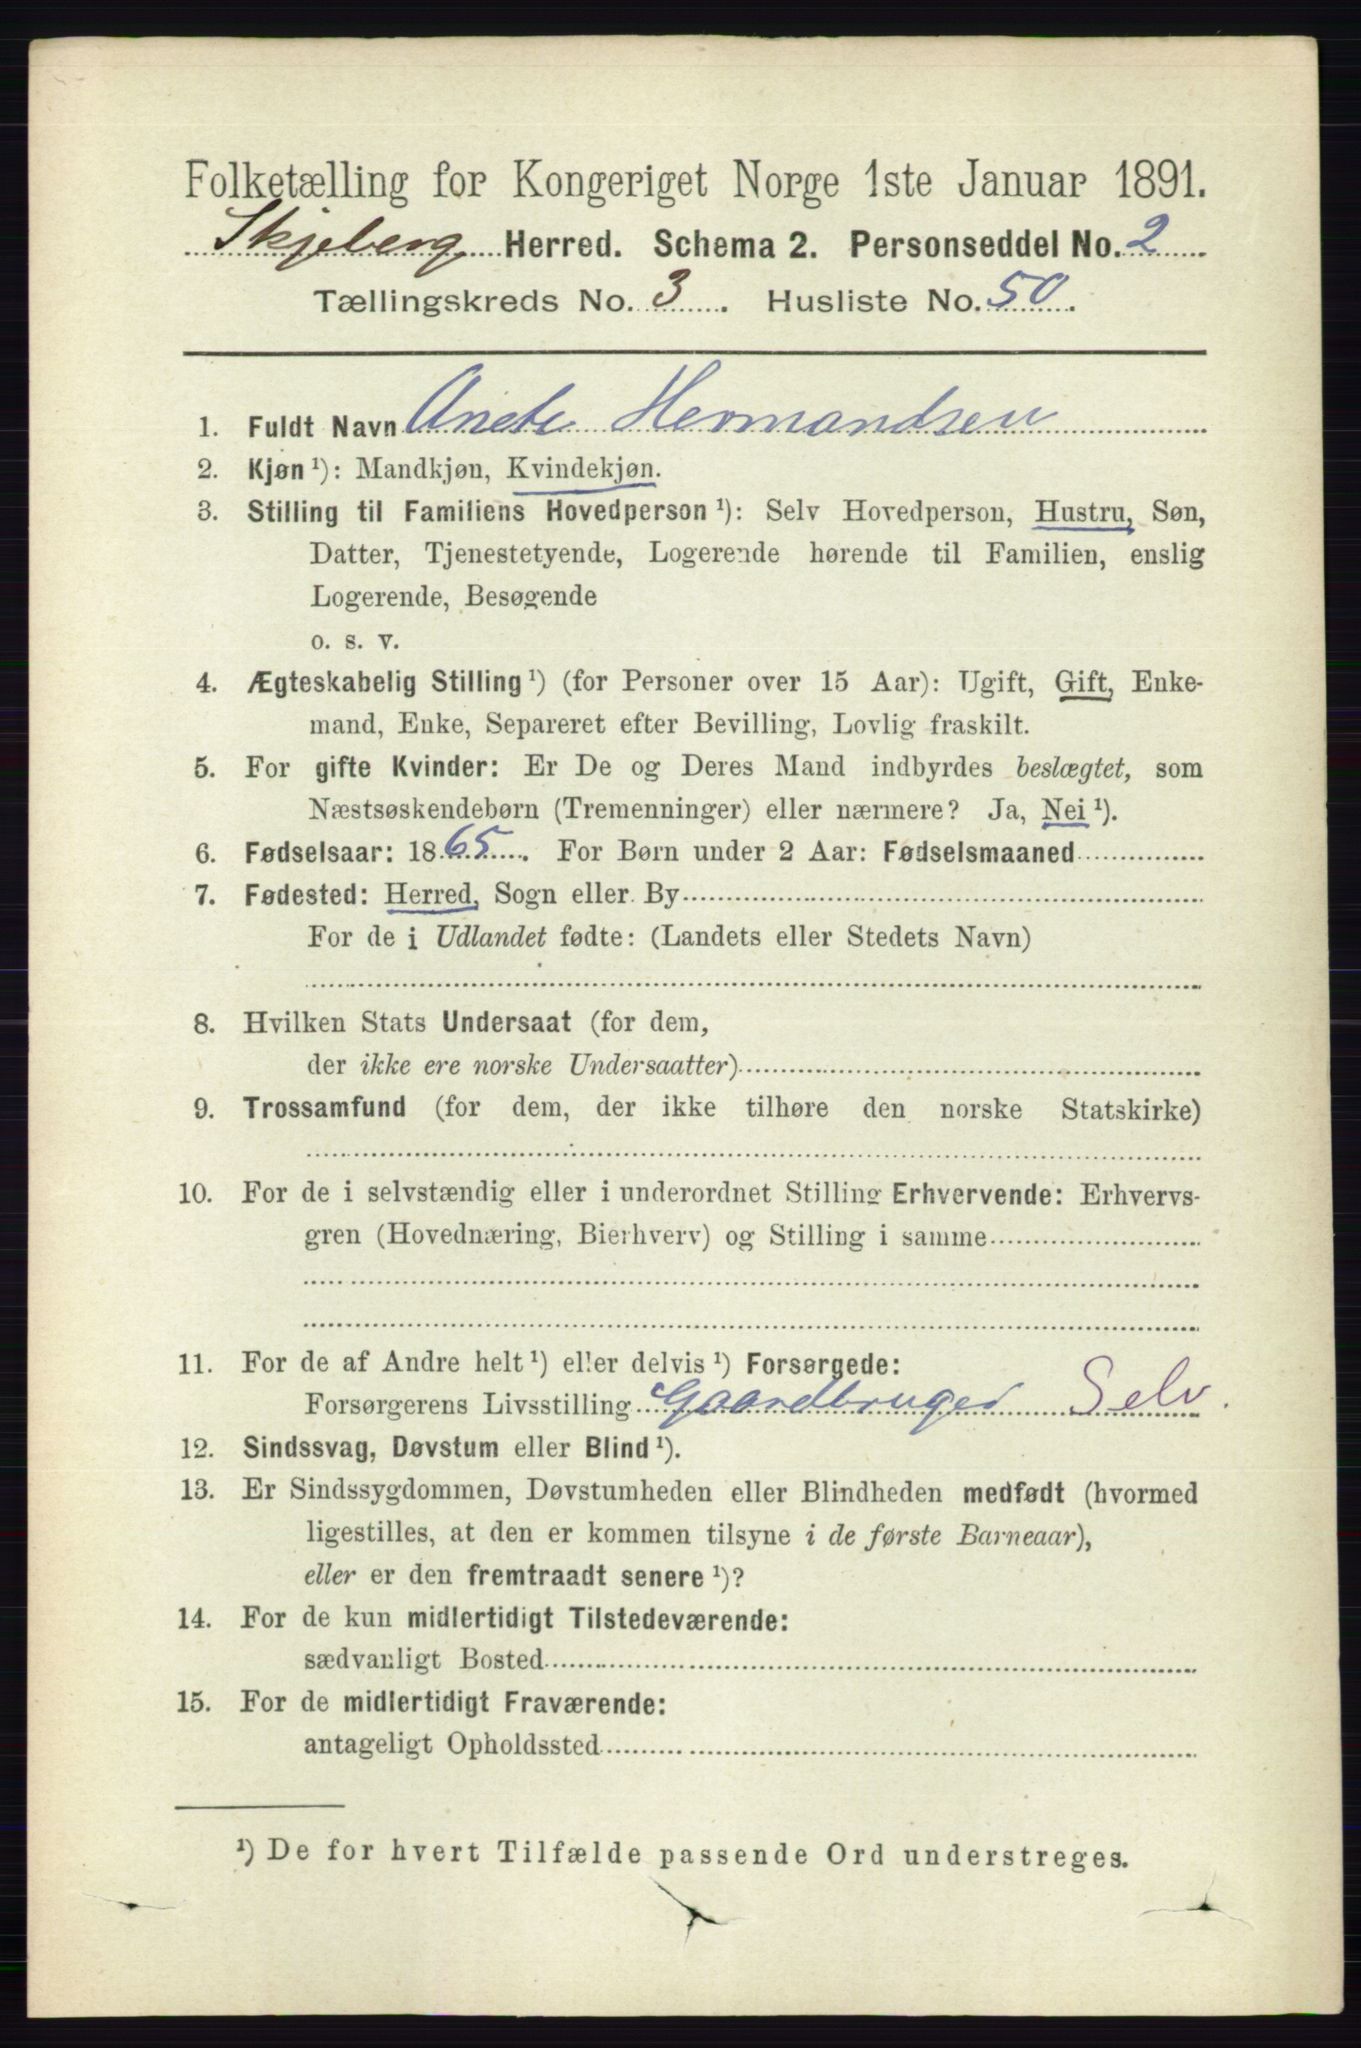 Folketælling for Kongeriget Norge 1ste Januar 1891.
Skjeberg Herred. Schema 2. Personseddel No. 2
Tællingskreds No. 3. Husliste No. 50.
1. Fuldt Navn Anete Hermandsen
2. Kjøn ¹): Mandkjøn, Kvindekjøn.
3. Stilling til Familiens Hovedperson ¹): Selv Hovedperson, Hustru, Søn,
Datter, Tjenestetyende, Logerende hørende til Familien, enslig
Logerende, Besøgende
o. s. v.
4. Ægteskabelig Stilling ¹) (for Personer over 15 Aar): Ugift, Gift, Enke-
mand, Enke, Separeret efter Bevilling, Lovlig fraskilt.
5. For gifte Kvinder: Er De og Deres Mand indbyrdes beslægtet, som
Næstsøskendebørn (Tremenninger) eller nærmere? Ja, Nei ¹).
6. Fødselsaar: 1865. For Børn under 2 Aar: Fødselsmaaned
7. Fødested: Herred, Sogn eller By
For de i Udlandet fødte: (Landets eller Stedets Navn)
8. Hvilken Stats Undersaat (for dem,
der ikke ere norske Undersaatter)
9. Trossamfund (for dem, der ikke tilhøre den norske Statskirke)
10. For de i selvstændig eller i underordnet Stilling Erhvervende: Erhvervs-
gren (Hovednæring, Bierhverv) og Stilling i samme
11. For de af Andre helt ¹) eller delvis ¹) Forsørgede:
Forsørgerens Livsstilling Gaardbruger Selv.
12. Sindssvag, Døvstum eller Blind ¹).
13. Er Sindssygdommen, Døvstumheden eller Blindheden medfødt (hvormed
ligestilles, at den er kommen tilsyne i de første Barneaar),
eller er den fremtraadt senere ¹)?
14. For de kun midlertidigt Tilstedeværende:
sædvanligt Bosted
15. For de midlertidigt Fraværende:
antageligt Opholdssted
¹) De for hvert Tilfælde passende Ord understreges.